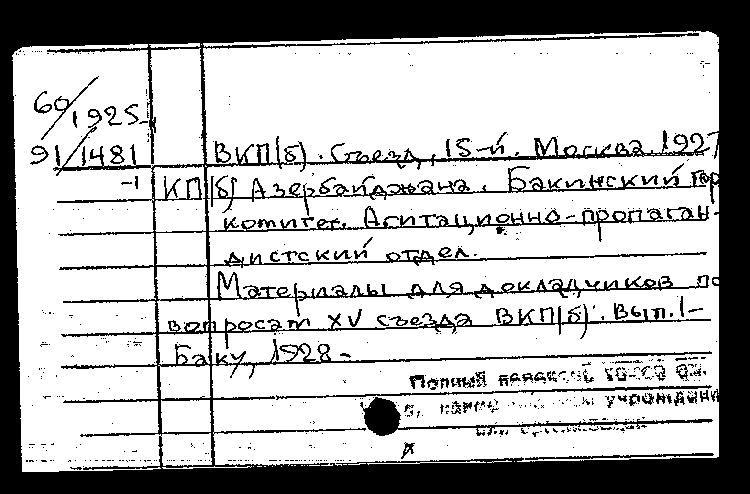 60/1925
91/1481 ВКП(б). Съезд, 15-й. Москва. 1927
-1 КП(б) Азербайджана. Бакинский Гор
комитет. Агитационно-пропаган-
дистский отдел.
Материалы для докладчиков по
вопросам XV съезда ВКП(б). Вып. 1-
Баку, 1928-
Полный
учреждени